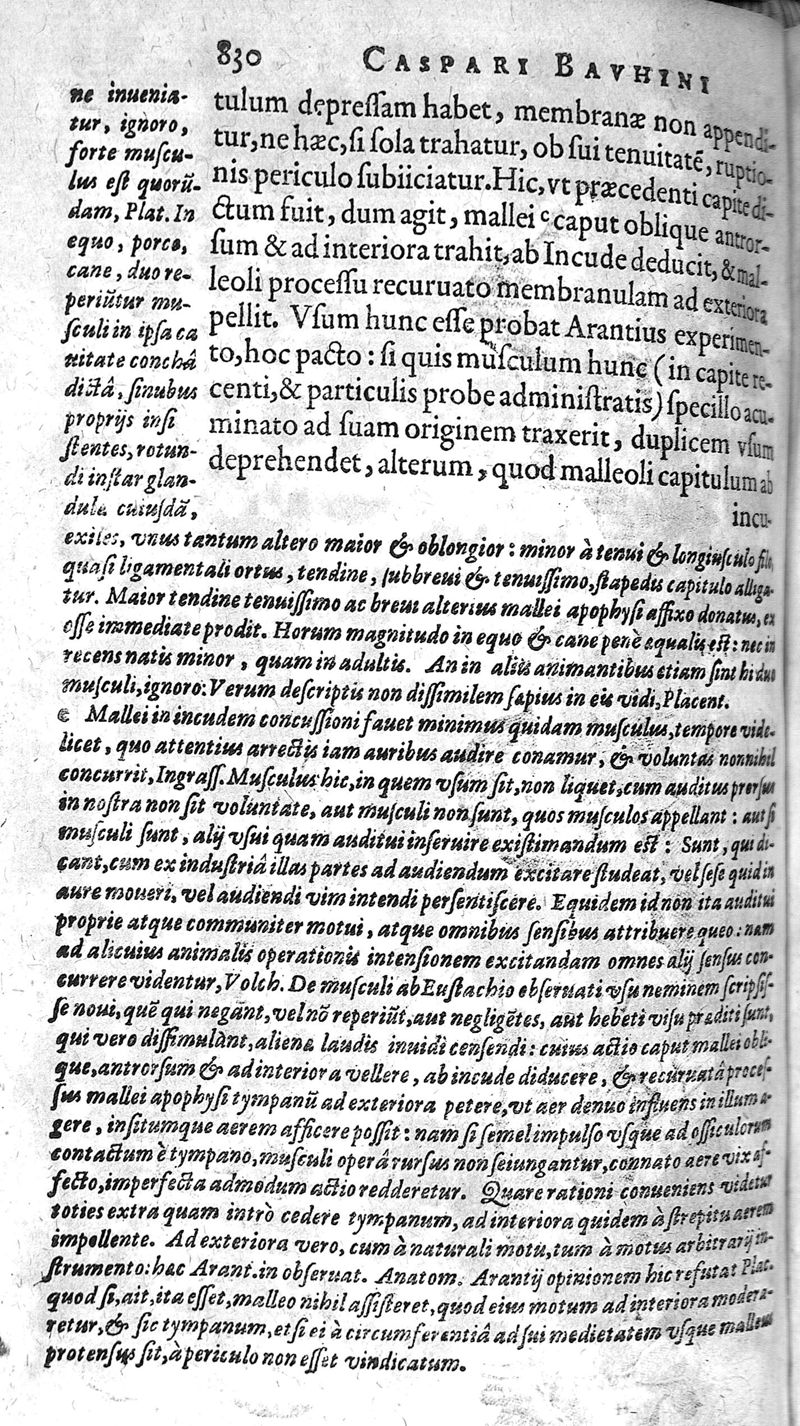 830 CASPARI BAVHINI
tulum depreſſam habet, membranæ non appendi-
tur, ne hæc, ſi ſola trahatur, ob ſui tenuitatē, ruptio-
nis periculo ſubiiciatur. Hic, vt præcedenti capite di-
ctum fuit, dum agit, mallei c caput oblique antror-
ſum & ad interiora trahit, ab Incude deducit, & mal-
leoli proceſſu recuruato membranulam ad exteriora
pellit. Vſum hunc eſſe probat Arantius experimen-
to, hoc pacto: ſi quis muſculum hunc (in capite re-
centi, & particulis probe adminiſtratis) ſpecillo acu-
minato ad ſuam originem traxerit, duplicem vſum
deprehendet, alterum, quod malleoli capitulum ab
incu-
ne inuenia-
tur, ignoro,
forte muſcu-
lus eſt quorū-
dam, Plat. In
equo, porco,
cane, duo re-
periūtur mu-
ſculi in ipſa ca
uitate conchâ
dictâ, ſinubus
proprijs inſi
ſtentes, rotun-
di inſtar glan-
dulæ cuiuſdā,
exiles, vnus tantum altero maior & oblongior: minor à tenui & longiuſculo filo,
quaſi ligamentali ortus, tendine, ſubbreui & tenuiſſimo, ſtapedis capitulo alliga-
tur. Maior tendine tenuiſſimo ac breui alterius mallei apophyſi affixo donatus, ex
oſſe immediate prodit. Horum magnitudo in equo & cane penè æqualis eſt: nec in
recens natis minor, quam in adultis. An in aliis animantibus etiam ſint hi duo
muſculi, ignoro: Verum deſcriptis non diſſimilem ſæpius in eis vidi, Placent.
c Mallei in incudem concuſſioni fauet minimus quidam muſculus, tempore vide-
licet, quo attentius arrectis iam auribus audire conamur, & voluntas nonnihil
concurrit, Ingraſſ. Muſculus hic, in quem vſum ſit, non liquet, cum auditus prorſus
in noſtra non ſit voluntate, aut muſculi non ſunt, quos muſculos appellant: aut ſi
muſculi ſunt, alij vſui quam auditui inſeruire exiſtimandum eſt: Sunt, qui di-
cant, cum ex induſtriâ illas partes ad audiendum excitare ſtudeat, vel ſeſe quid in
aure moueri, vel audiendi vim intendi perſentiſcere. Equidem id non ita auditui
proprie atque communiter motui, atque omnibus ſenſibus attribuere queo: nam
ad alicuius animalis operationis intenſionem excitandam omnes alij ſenſus con-
currere videntur, Volch. De muſculi ab Euſtachio obſeruati vſu neminem ſcripſiſ-
ſe noui, quē qui negant, vel nō reperiūt, aut negligētes, aut hebeti viſu præditi ſunt,
qui vero diſſimulant, alienæ laudis inuidi cenſendi: cuius actio caput mallei obli-
que, antrorſum & ad interiora vellere, ab incude diducere, & recuruatâ proceſ-
ſus mallei apophyſi tympanū ad exteriora petere, vt aer denuo influens in illum a-
gere, inſitumque aerem afficere poſſit: nam ſi ſemel impulſo vſque ad oſſiculorum
contactum è tympano, muſculi operâ rurſus non ſeiungantur, connato aere vix af-
fecto, imperfecta admodum actio redderetur. Quare rationi conueniens videtur
toties extra quam intrò cedere tympanum, ad interiora quidem à ſtrepitu aerem
impellente. Ad exteriora vero, cum à naturali motu, tum à motus arbitrarij in-
ſtrumento: hæc Arant. in obſeruat. Anatom. Arantij opinionem hic refutat Plac.
quod ſi, ait, ita eſſet, malleo nihil aſſiſteret, quod eius motum ad interiora modera-
retur, & ſic tympanum, etſi ei à circumferentiâ ad ſui medietatem vſque malleus
protenſus ſit, à periculo non eſſet vindicatum.